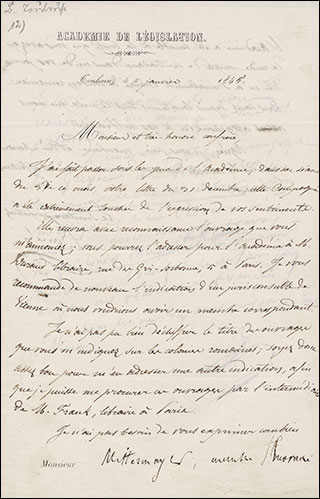 ACADEMIE DE LÉGISLATION.
Toulouse, le janvier 1865
Monsieur et très honoré confrère
J'ai fait passer sous les yeux de l'Académie, dans sa séance
du de ce mois votre lettre du 21 décembre; elle Compagnie
a été extrêmement touchée de l'expression de vos sentiments.
Elle recevra avec reconnaissance l'ouvrage que vous
m'annoncez; vous pouvez l'adresser pour l'académie à M.
Durand libraire, rue des Grès-Sorbonne, 5 à Paris. Je vous
recommande de nouveau l'indication d'un jurisconsulte de
Vienne où nous voudrions avoir un membre correspondant.
Je n'ai pas pu bien déchiffrer le titre de ouvrage
que vous m'indiquez sur les colonies romaines; soyez donc
assez bon pour m'en adresser une autre indication, afin
que je puisse me procurer ce ouvrage par l'intermédiaire
de M. Frank, libraire à Paris.
Je n'ai pas besoin de vous exprimer combien
Monsieur Mittermayer, membre